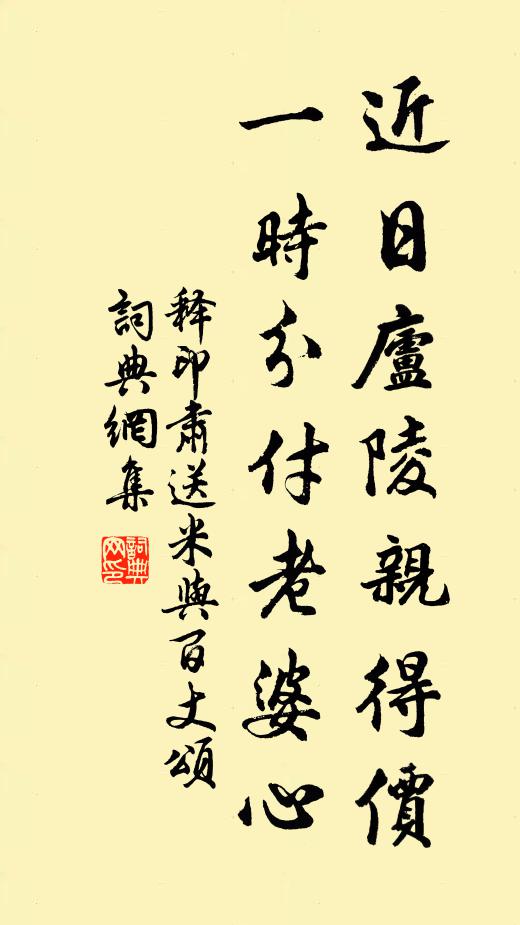 近日廬陵親得價
一時分付老婆心
释印肃送米與百丈頌
詞典網集
詞典网印